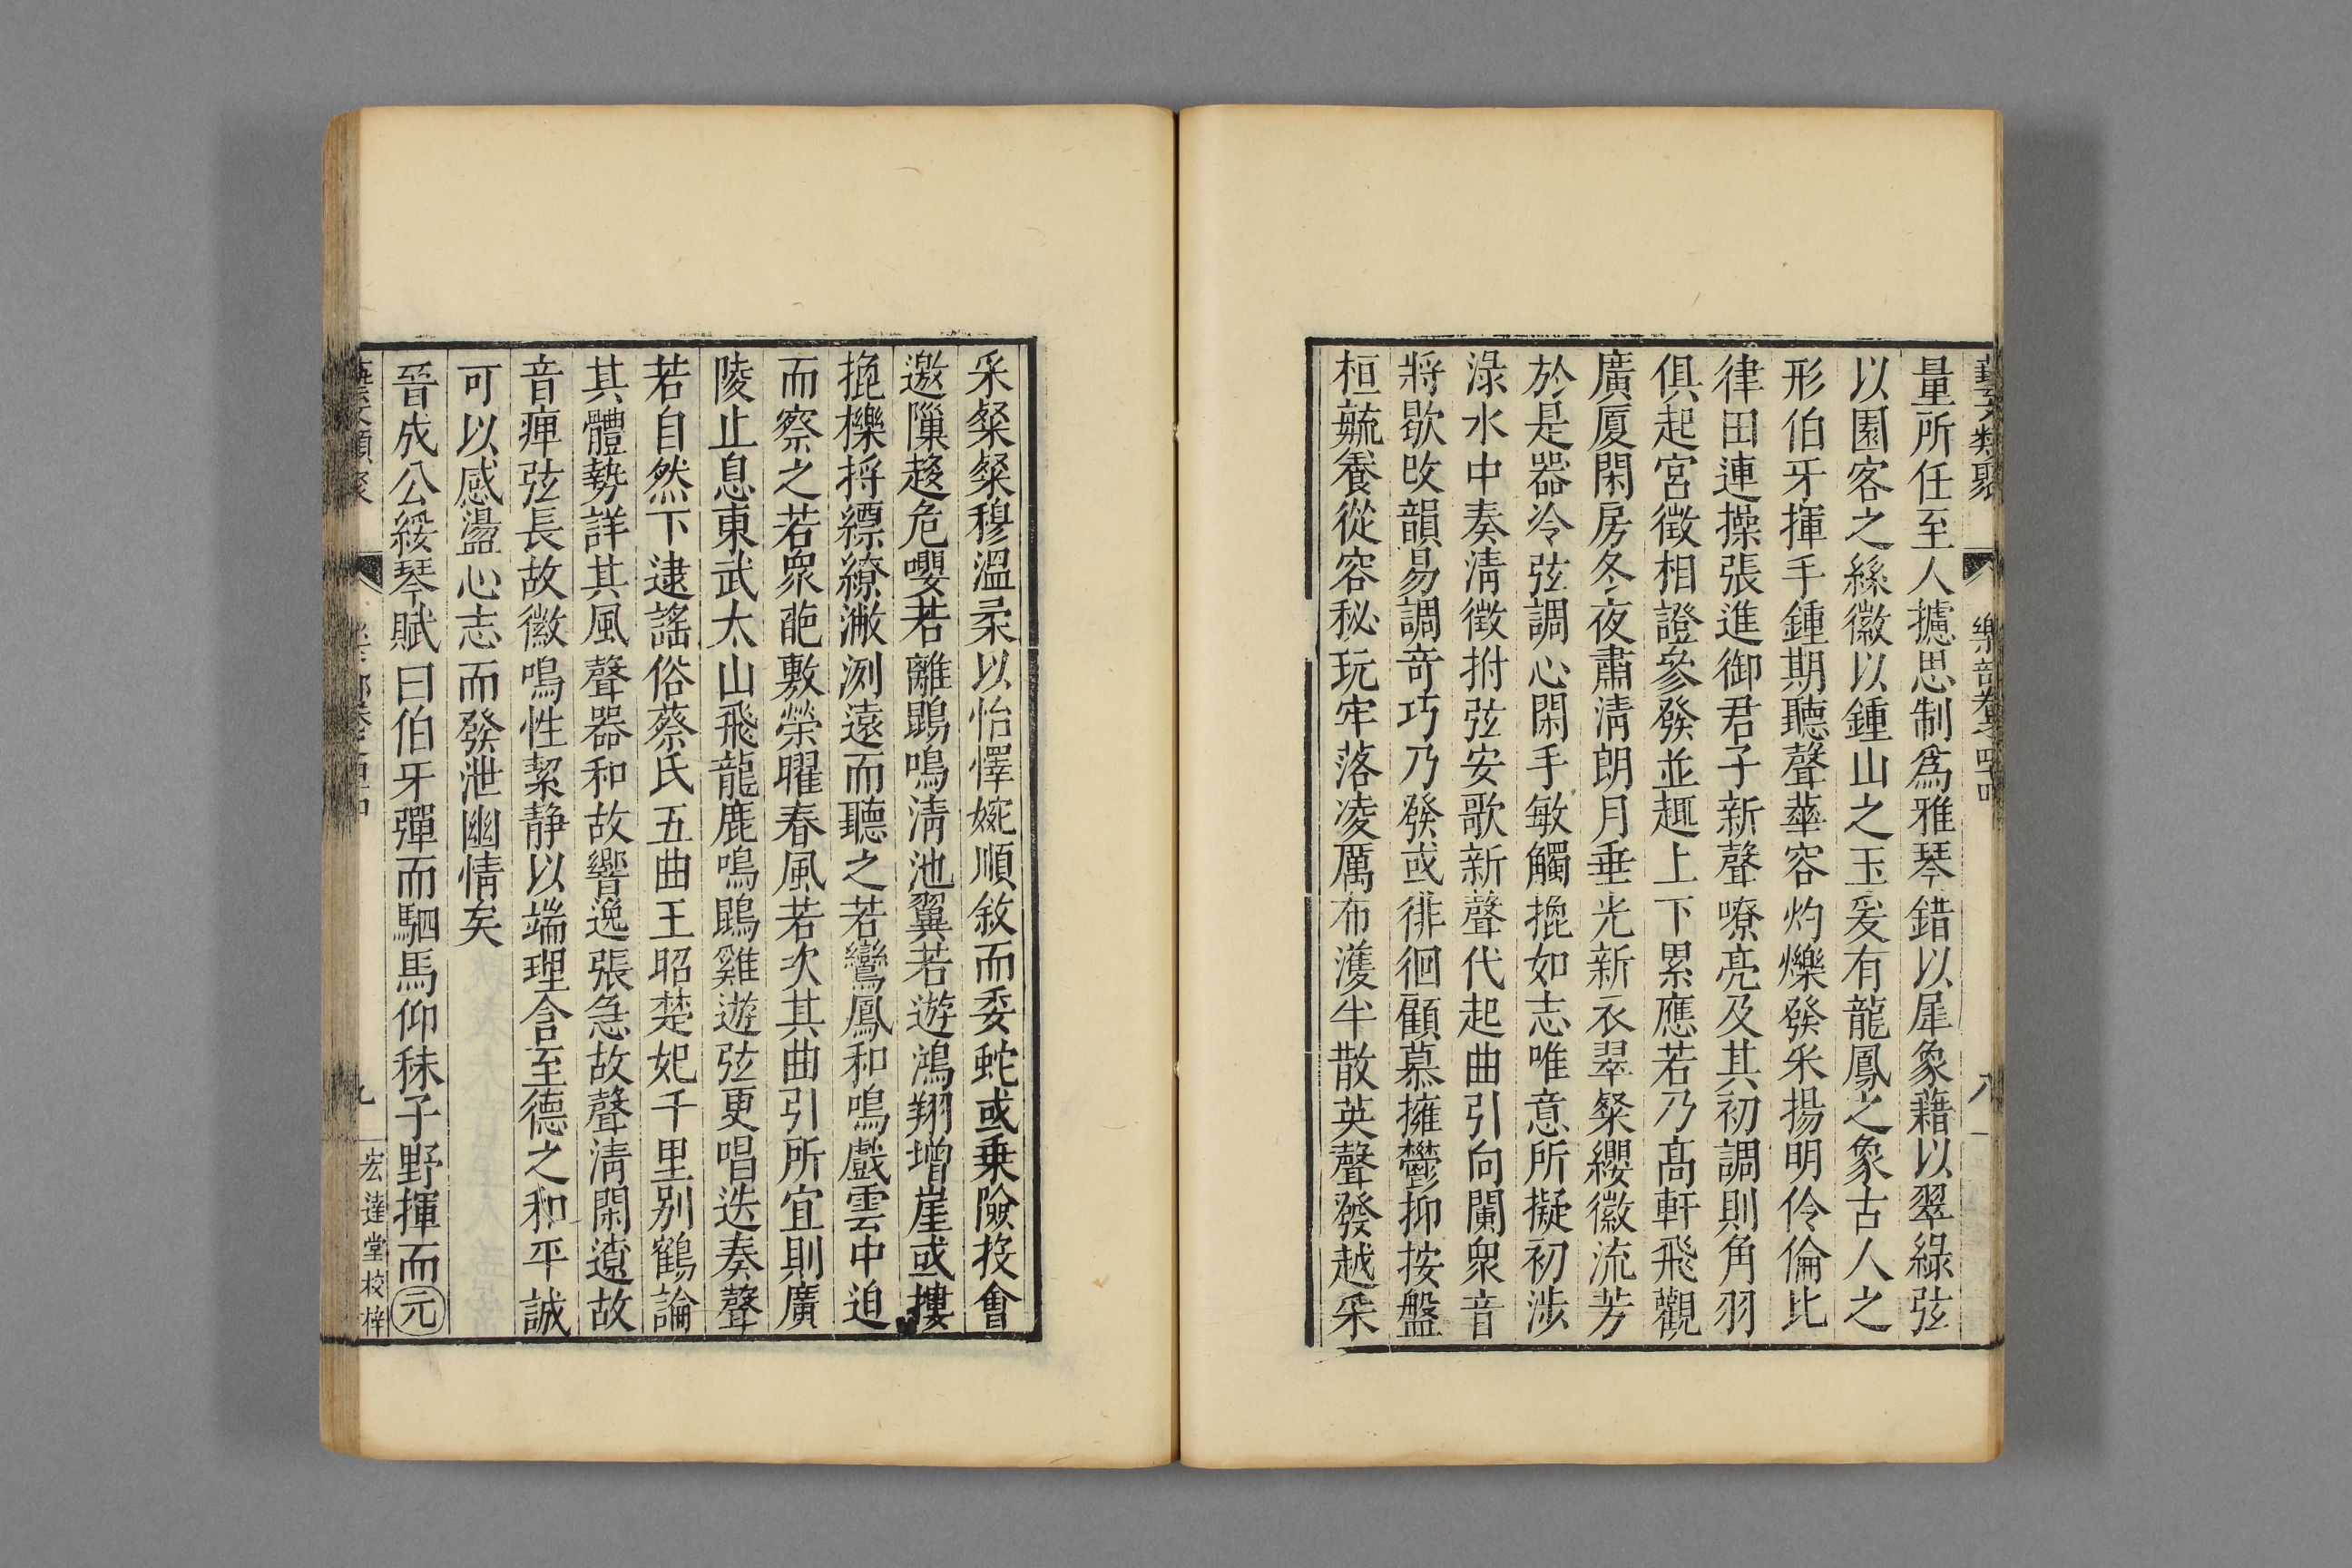 藝文類聚 樂部卷之四四 八
量所任至人攄思制爲雅琴錯以犀象藉以翠綠弦
以園客之絲徽以鍾山之玉爰有龍鳳之象古人之
形伯牙揮手鍾期聽聲華容灼爍發采揚明伶倫比
律田連操張進御君子新聲嘹亮及其初調則角羽
俱起宮徵相證參發並趣上下累應若乃高軒飛觀
廣厦閑房冬夜肅清朗月垂光新衣翠粲纓徽流芳
於是器冷弦調心閑手敏觸㧓如志唯意所擬初涉
淥水中奏清徵拊弦安歌新聲代起曲引向闌衆音
將歇改韻易調奇巧乃發或徘徊顧慕擁鬱抑按盤
桓毓養從容秘玩牢落凌厲布濩半散英聲發越采
采粲粲穆溫柔以怡懌婉順敘而委蛇或乘險投會
邀隟趍危嚶若離鵾鳴清池翼若遊鴻翔增崖或摟
㧓櫟捋縹繚潎洌遠而聽之若鸞鳳和鳴戲雲中迫
而察之若衆葩敷榮曜春風若次其曲引所宜則廣
陵止息東武太山飛龍鹿鳴鵾雞遊弦更唱迭奏聲
若自然下逮謠俗蔡氏五曲王昭楚妃千里别鶴論
其體勢詳其風聲器和故響逸張急故聲清閑遼故
音痺弦長故徽鳴性絜静以端理含至德之和平誠
可以感盪心志而發泄幽情矣
晉成公綏琴賦曰伯牙彈而駟馬仰秣子野揮而元
九 宏達堂校梓